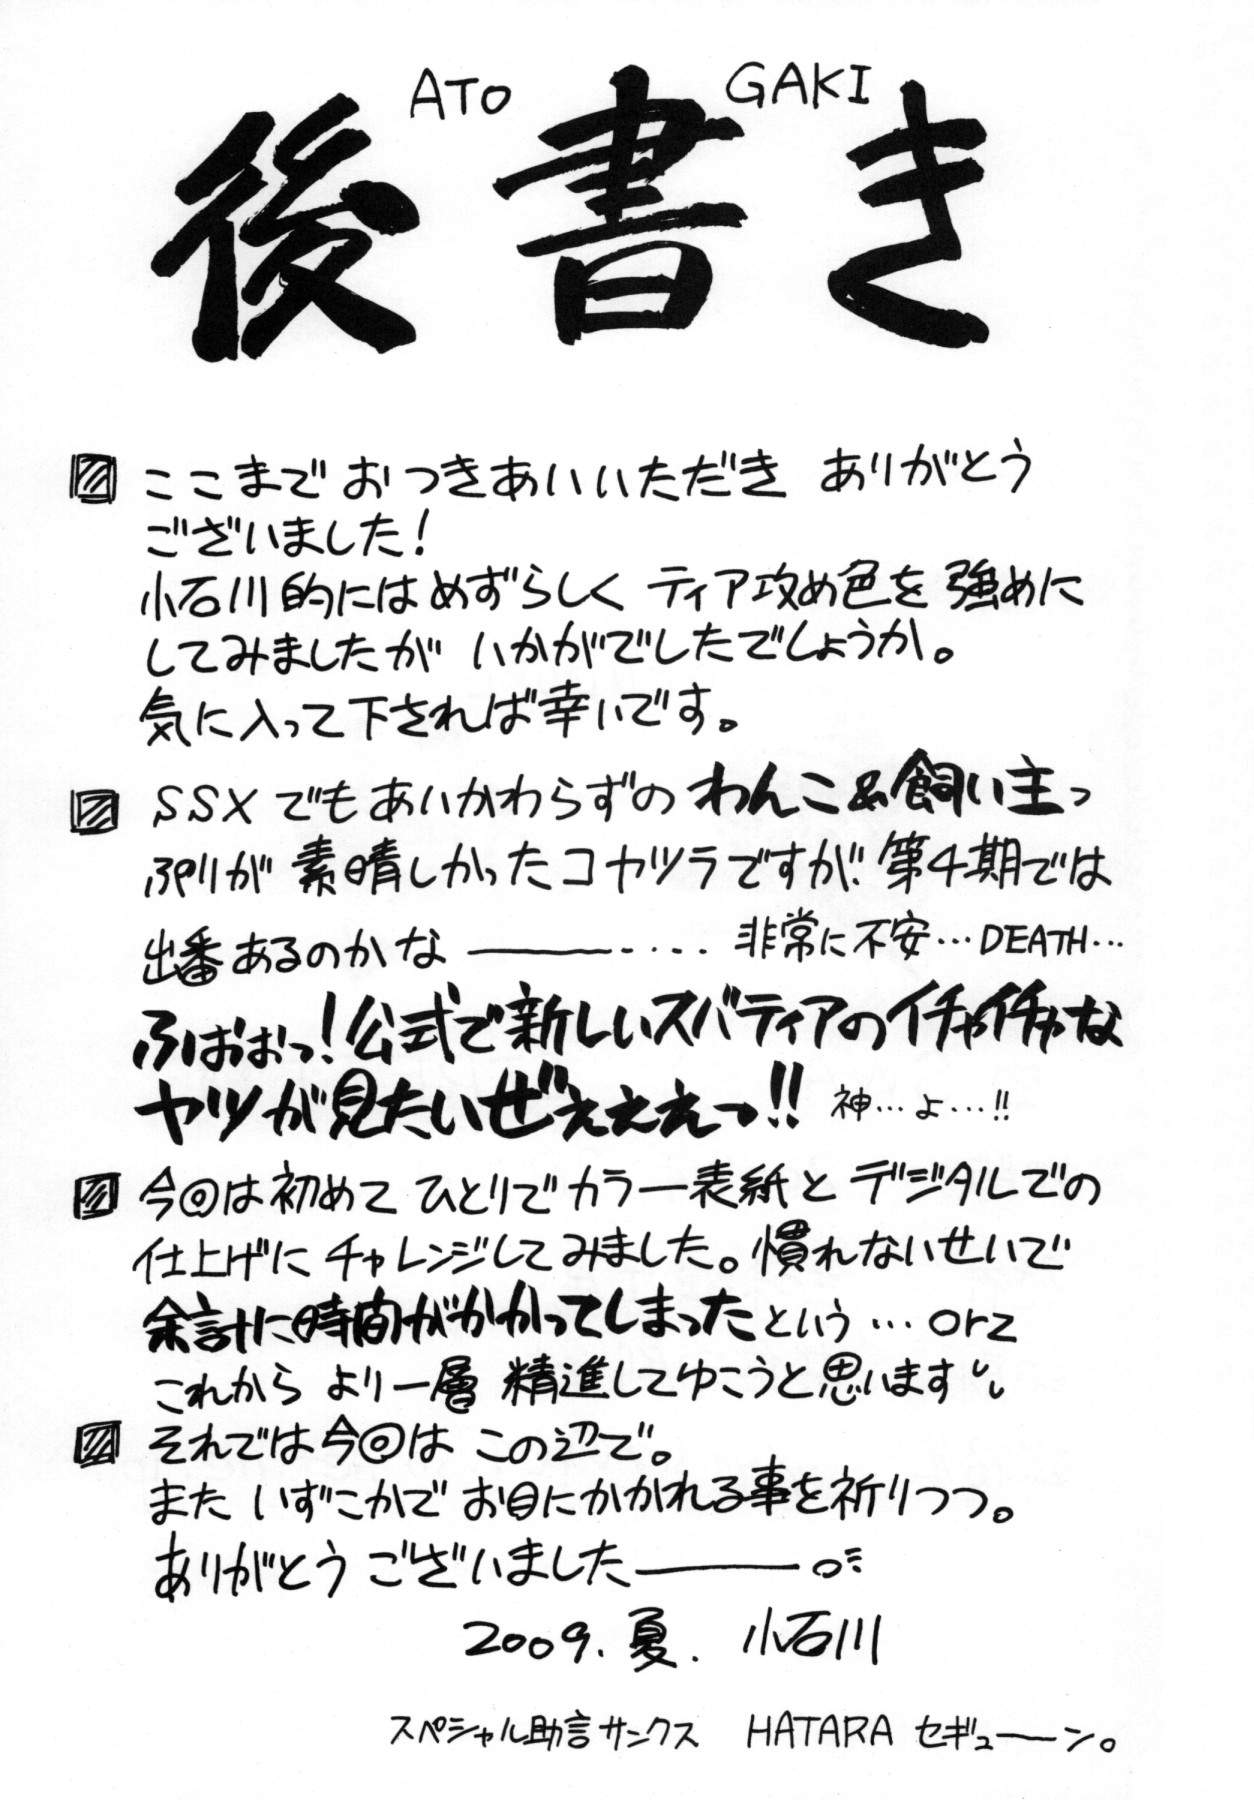 ATO GAKI
後書き
ここまで おつきあいいただき ありがとう
ございました!
小石川的にはめずらしく ティア攻め色を強めに
してみましたが いかがでしたでしょうか。
気に入って下されば幸いです。
SSXでもあいかわらずの わんこ&飼い主っ
ぷりが 素晴しかったコヤツラですが!! 第4期では
出番あるのかな――‐・・・ 非常に不安…DEATH…
ふおおおっ!公式で新しいスバティアのイチャイチャな
ヤツが見たいぜぇぇぇっ!! 神…よ…!!
今回は初めて ひとりでカラー表紙と デジタルでの
仕上げに チャレンジしてみました。慣れないせいで
余計に時間がかかってしまったという…orz
これから より一層 精進してゆこうと思います
それでは今回は この辺で。
また いずこかで お目にかかれる事を祈りつつ。
ありがとう ございました――――○
2009.夏. 小石川
スペシャル助言サンクス HATARA セギューーン。